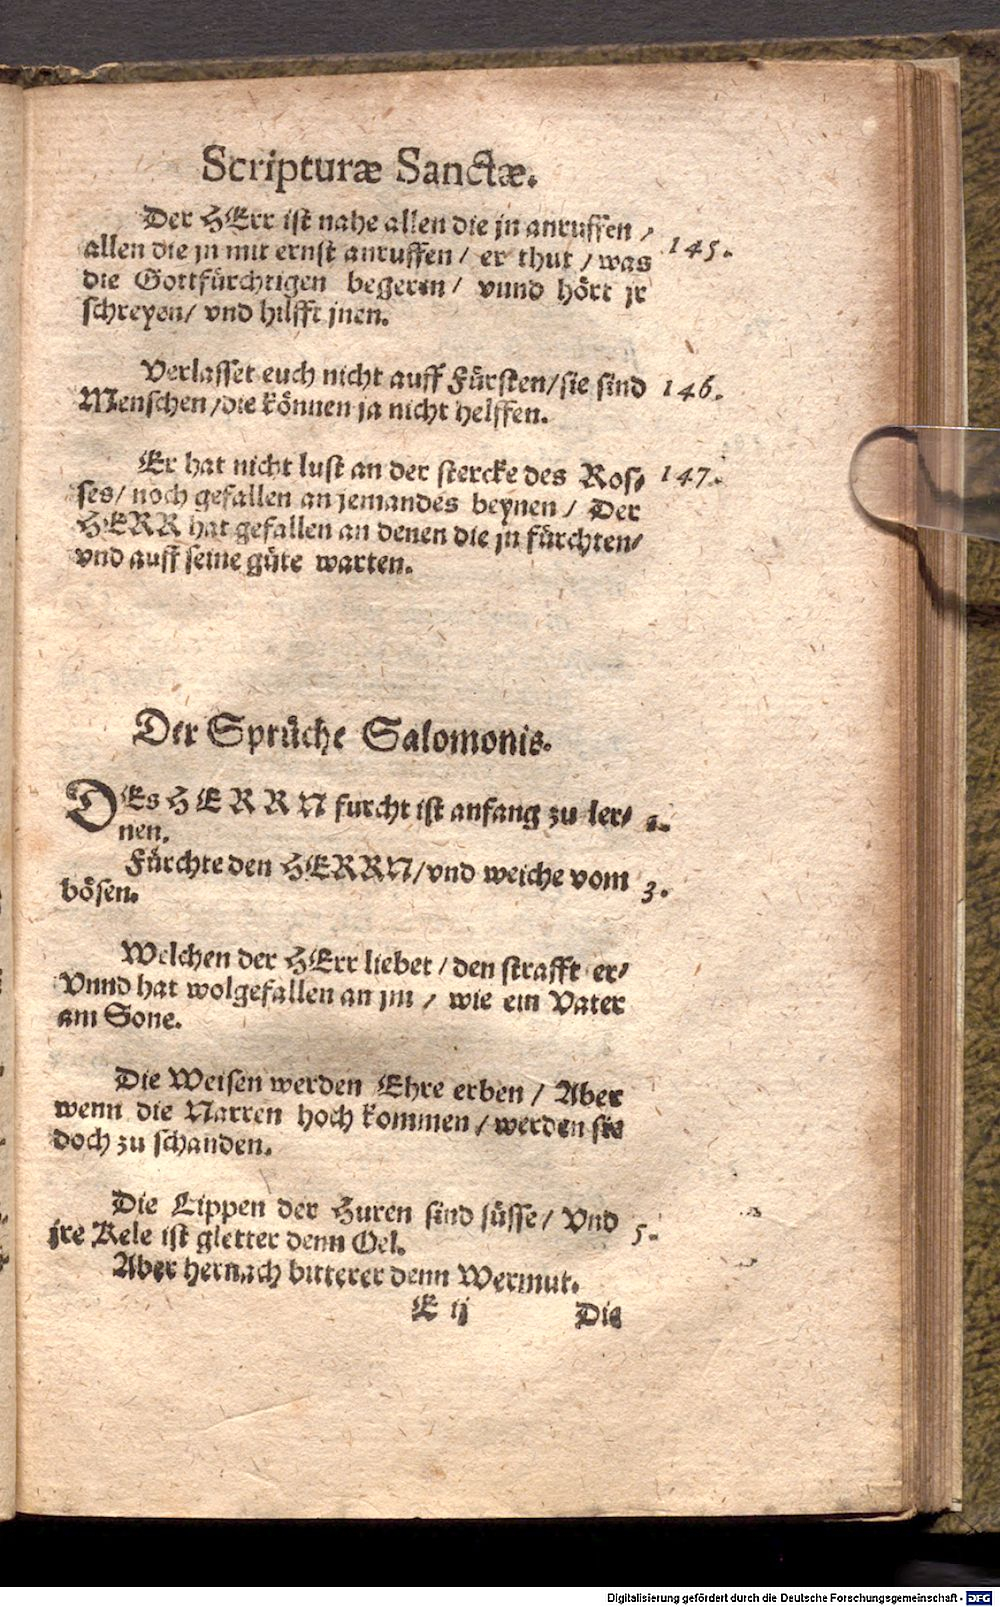 Scripturæ Sanctæ.
Der HErr ist nahe allen die jn anruffen / 145.
allen die jn mit ernst anruffen / er thut / was
die Gottfürchtigen begeren / vnnd hört jr
schreyen / vnd hilfft jnen.
Verlasset euch nicht auff Fürsten / sie sind 146.
Menschen / die können ja nicht helffen.
Er hat nicht lust an der stercke des Ros- 147.
ses / noch gefallen an jemandes beynen / Der
HERR hat gefallen an denen die jn fürchten /
vnd auff seine güte warten.
Der Sprüche Salomonis.
DEs HERRN furcht ist anfang zu ler- 1.
nen.
Fürchte den HERRN / vnd weiche vom 3.
bösen.
Welchen der HErr liebet / den strafft er /
Vnnd hat wolgefallen an jm / wie ein Vater
am Sone.
Die Weisen werden Ehre erben / Aber
wenn die Narren hoch kommen / werden sie
doch zu schanden.
Die Lippen der Huren sind süsse / Vnd 5.
jre Kele ist gletter denn Oel.
Aber hernach bitterer denn Wermut.
E ij Die
Digitalisierung gefördert durch die Deutsche Forschungsgemeinschaft - DFG